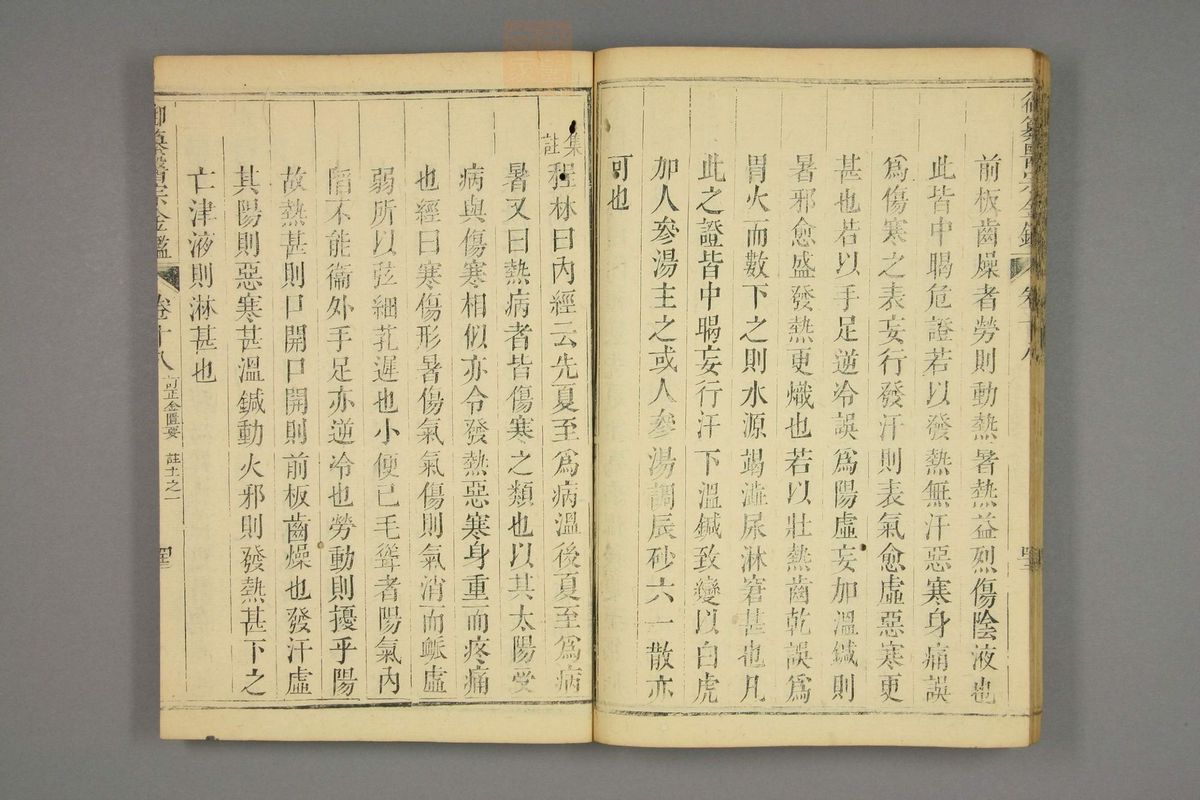 御纂醫宗金鑑 卷十八
前板齒燥者勞則動熱暑熱益烈傷陰液也
此皆中暍危證若以發熱無汗惡寒身痛誤
爲傷寒之表妄行發汗則表氣愈虛惡寒更
甚也若以手足逆冷誤爲陽虛妄加溫鍼則
暑邪愈盛發熱更熾也若以壯熱齒乾誤爲
胃火而數下之則水源竭澁尿淋窘甚也凡
此之證皆中暍妄行汗下溫鍼致變以白虎
加人參湯主之或人參湯調辰砂六一散亦
可也
集註程林曰內經云先夏至爲病溫後夏至爲病
暑又曰熱病者皆傷寒之類也以其太陽受
病與傷寒相似亦令發熱惡寒身重而疼痛
也經曰寒傷形暑傷氣氣傷則氣消而脈虛
弱所以弦細芤遲也小便已毛聳者陽氣內
陷不能衞外手足亦逆冷也勞動則擾乎陽
故熱甚則口開口開則前板齒燥也發汗虛
其陽則惡寒甚溫鍼動火邪則發熱甚下之
亡津液則淋甚也
御纂醫宗金鑑 卷十八 訂正金匱要 註士之一